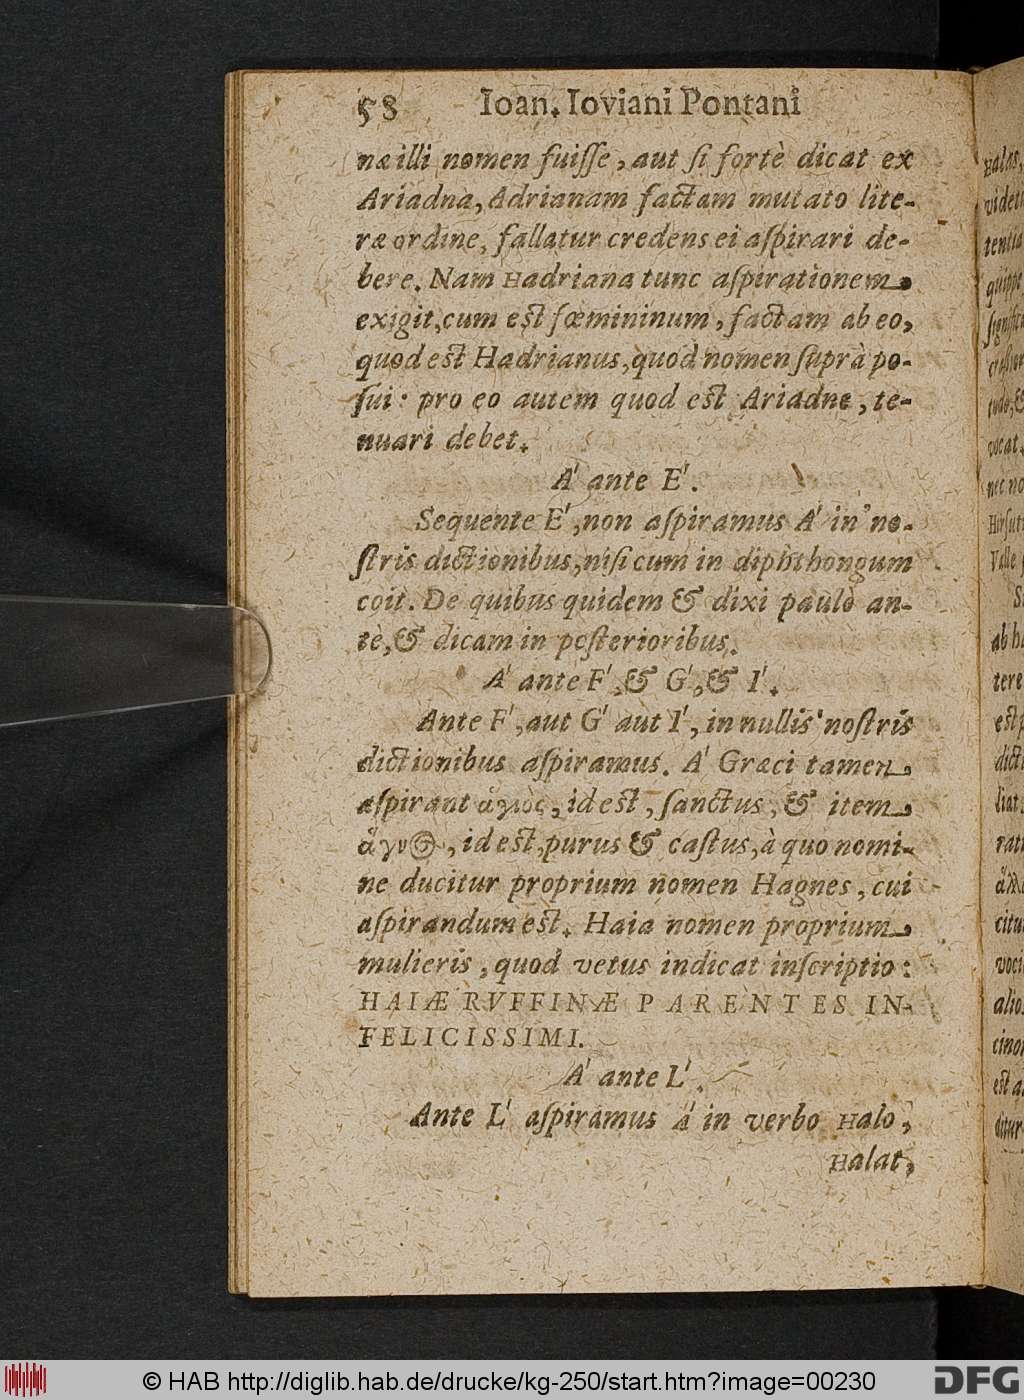 58 Ioan. Ioviani Pontani
næ illi nomen fuiſſe, aut ſi fortè dicat ex
Ariadna, Adrianam factam mutato lite-
ræ ordine, fallatur credens ei aſpirari de-
bere. Nam Hadriana tunc aſpirationem
exigit, cum est fœmininum, factam ab eo,
quod est Hadrianus, quod nomen ſuprà po-
ſui: pro eo autem quod est Ariadne, te-
nuari debet.
A' ante E'.
Sequente E', non aſpiramus A' in no-
ſtris dictionibus, niſi cum in diphthongum
coit. De quibus quidem & dixi paulò an-
tè, & dicam in poſterioribus.
A' ante F', & G', & I'.
Ante F', aut G' aut I', in nullis noſtris
dictionibus aſpiramus. A' Græci tamen
aſpirant ἅγιὸς, id est, ſanctus, & item
ἅγν@, id est, purus & caſtus, à quo nomi-
ne ducitur proprium nomen Hagnes, cui
aſpirandum est. Haia nomen proprium
mulieris, quod vetus indicat inſcriptio:
HAIÆ RVFFINÆ PARENTES IN-
FELICISSIMI.
A' ante L'.
Ante L' aſpiramus A' in verbo Halo,
Halat,
© HAB http://diglib.hab.de/drucke/kg-250/start.htm?image=00230
DFG